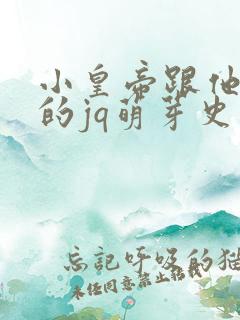 小皇帝跟他
的jq萌芽史
忘記呼吸的猫
未经同意禁止转载